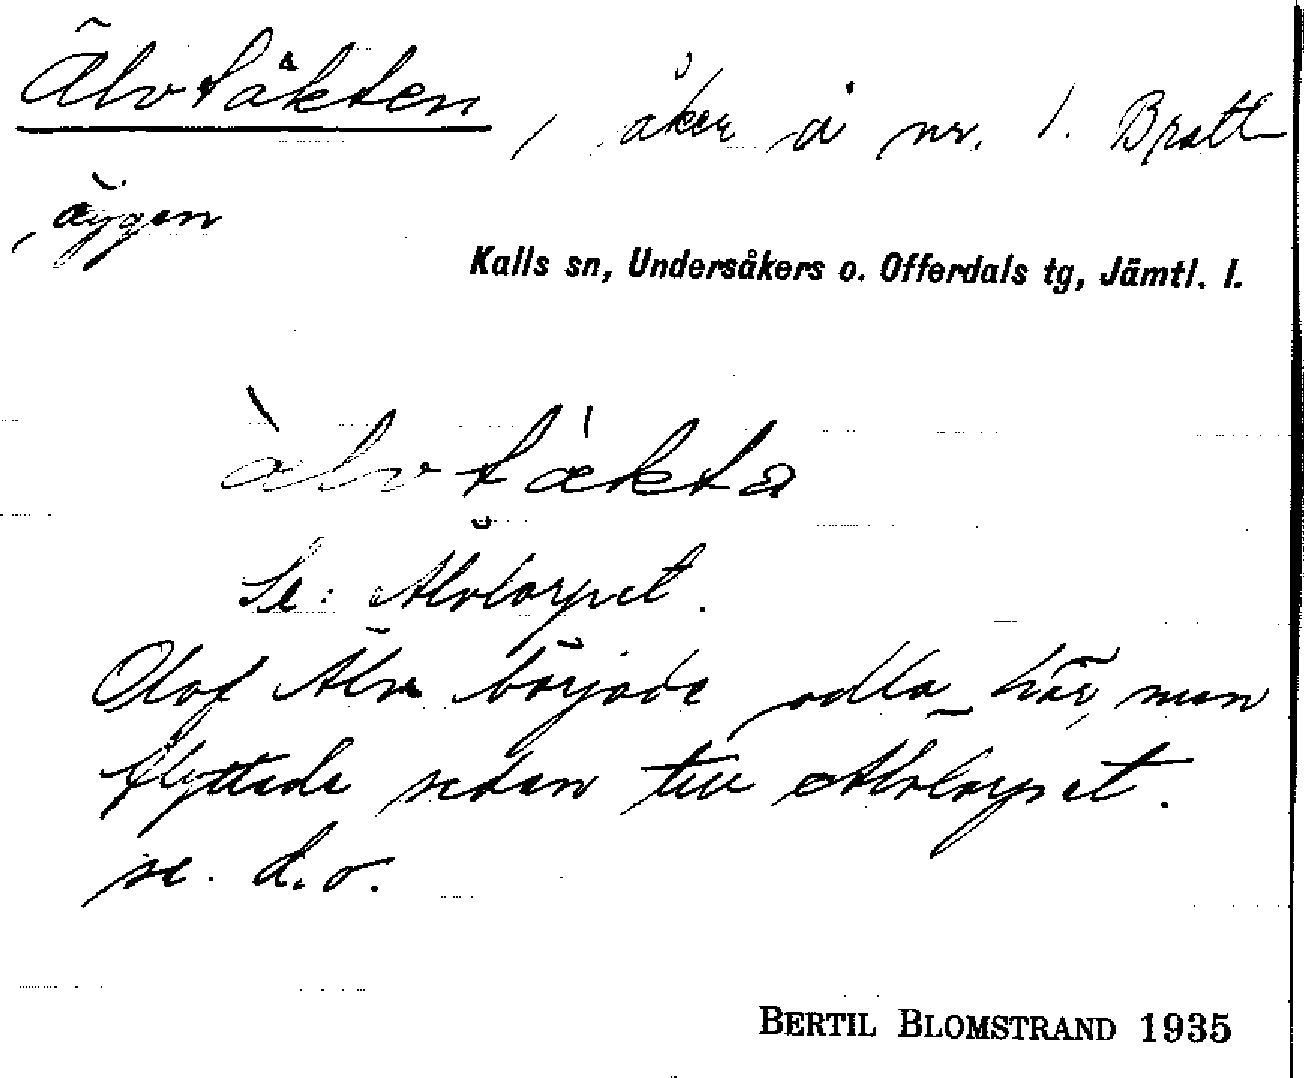 Älvtäkten, åker å nr. 1. Bratt-
äggen
Kalls sn, Undersåkers o. Offerdals tg, Jämtl. l.
æ̀lvtækta
Se: Älvtorpet.
Olof Älv började odla här, men
flyttade sedan till Älvtorpet.
se. d.o.
BERTIL BLOMSTRAND 1935